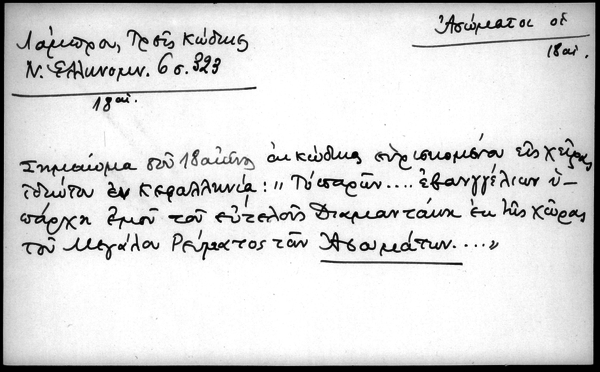 Λάμπρου, Τρεῖς κώδικες
Ν. Ἑλληνομν. 6 σ. 323
18 αἰ.
Ἀσώματοι οἱ
18 αἰ.
Σημείωμα τοῦ 18 αἰῶνος ἐκ κώδικος εὑρισκομένου εἰς χεῖρας
ἰδιώτου ἐν Κεφαλληνίᾳ: „ Τὸ παρὸν .... ἐβανγγέλιων ὑ-
πάρχη ἐμοῦ τοῦ εὐτελοῦς Διαμαντάκη ἐκ τῆς χώρας
τοῦ Μεγάλου Ρεύματος τῶν Ἀσωμάτων .... „